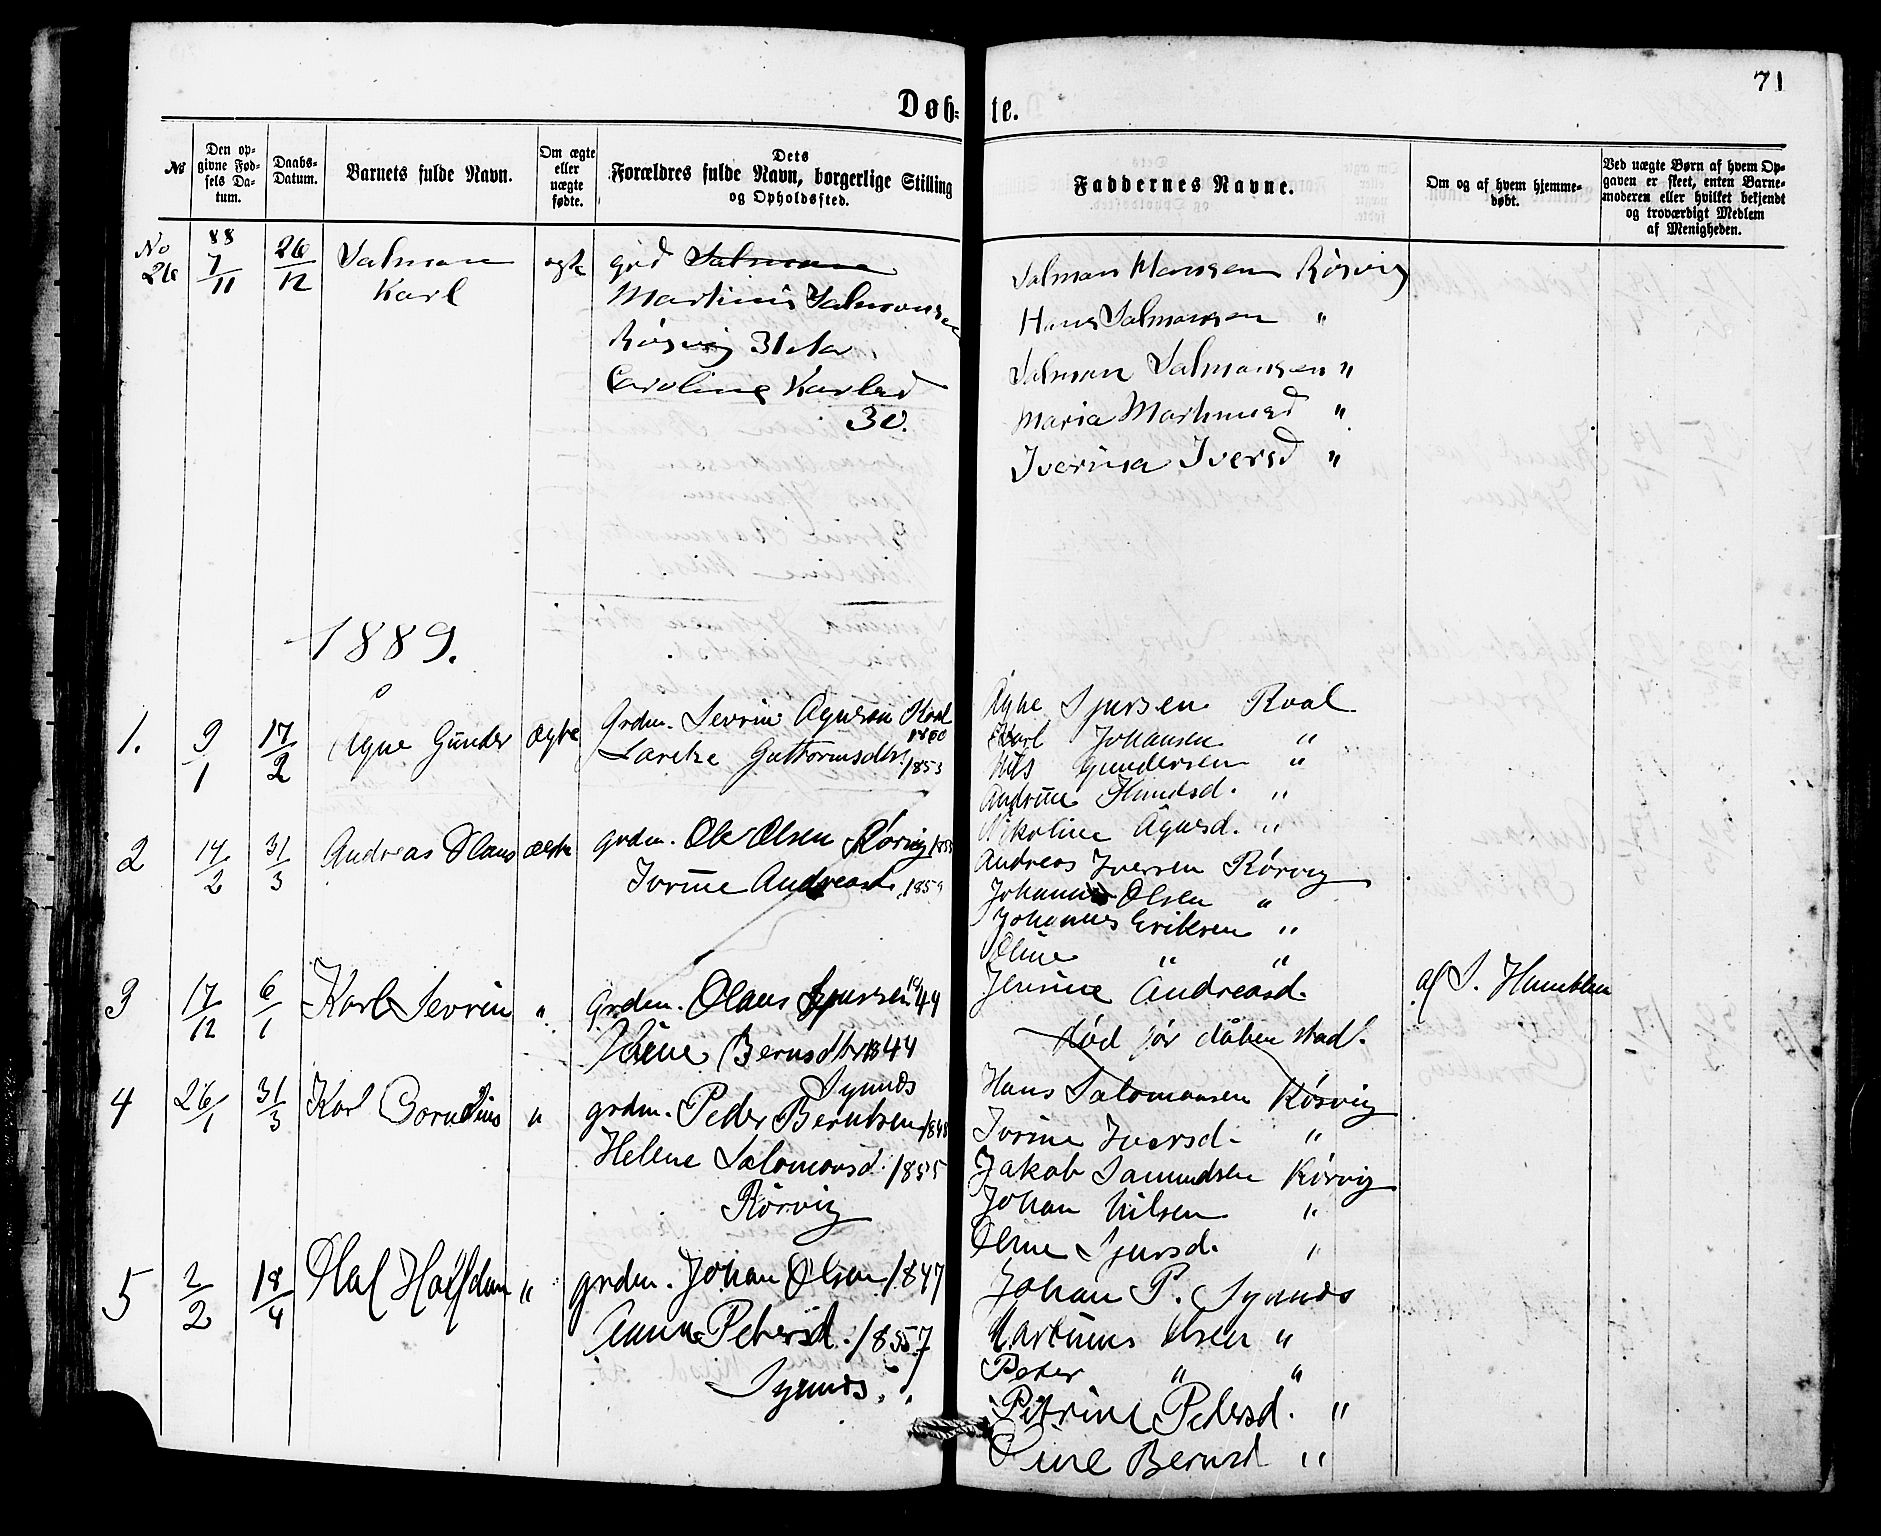 71
Døb- te.
№
Den op-
givne Fød-
sels Da-
tum.
Daabs-
Datum.
Barnets fulde Navn.
Om ægte
eller
uægte
fødte.
Dets
Forældres fulde Navn, borgerlige Stilling
og Opholdssted.
Faddernes Navne.
Om og af hvem hjemme-
døbt.
Ved uægte Børn af hvem Op-
gaven er skeet, enten Barne-
moderen eller hvilket bekjendt
og troværdigt Medlem
af Menigheden.
No 26 88 7/11 26/12 Salmon Karl ægte
grd Salmon
Martinus Salmonsen
Rørvig 31 Aar
Caroline Karlsd
30.
Salmon Hansen Rørvig
Hans Salmonsen "
Salmon Salmonsen "
Maria Martinusd "
Iverina Iversd "
1889.
1. 9/1 17/2 Agne Gunder Ægte
Grdm. Sevrin Agnesen Roal 1860
Laretse Guttormsdtr 1853
Agne Sjursen Roal
Karl Johansen "
Nils Gundersen "
Andrine Knudsd. "
Nikoline Agnesd. "
2 14/2 31/3 Andreas Olaus Ægte
grdm. Ole Olsen Rørvig 1855
Ivrine Andreasd. 1859
Andreas Iversen Rørvig
Johannes Olsen "
Johannes Eriksen "
Oline " "
Jensine Andreasd.
3 17/12 6/1 Karl Sevrin "
Grdm. Olaus Sjursen 1844
Oline Bernsdtr 1844
Synnes
død før dåben stad.
af S. Hamblen
4 26/1 31/3 Karl Cornelius "
grdm. Peder Berntsen 1848
Helene Salomonsd. 1855
Rørvig
Hans Salomonsen Rørvig
Ivrine Iversd. "
Jakob Samundsen Rørvig
Johan Nilsen "
Oline Sjursd. "
5 2/2 18/4 Olaf Halfdan "
grdm. Johan Olsen 1847
Anna Petersd. 1857
Synnes.
Johan P. Synnes
Martinus Olsen "
Peter " "
Petrine Petersd. "
Oline Bernsd "